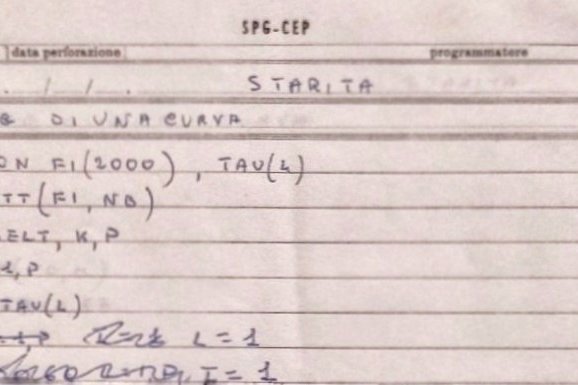 SPG-CEP
data perforazione programmatore
. / / . STARITA
DI UNA CURVA
ON FI(2000), TAU(L)
TT(FI, NB)
ELT, K, P
1, P
TAU(L)
L = 1
I = 1